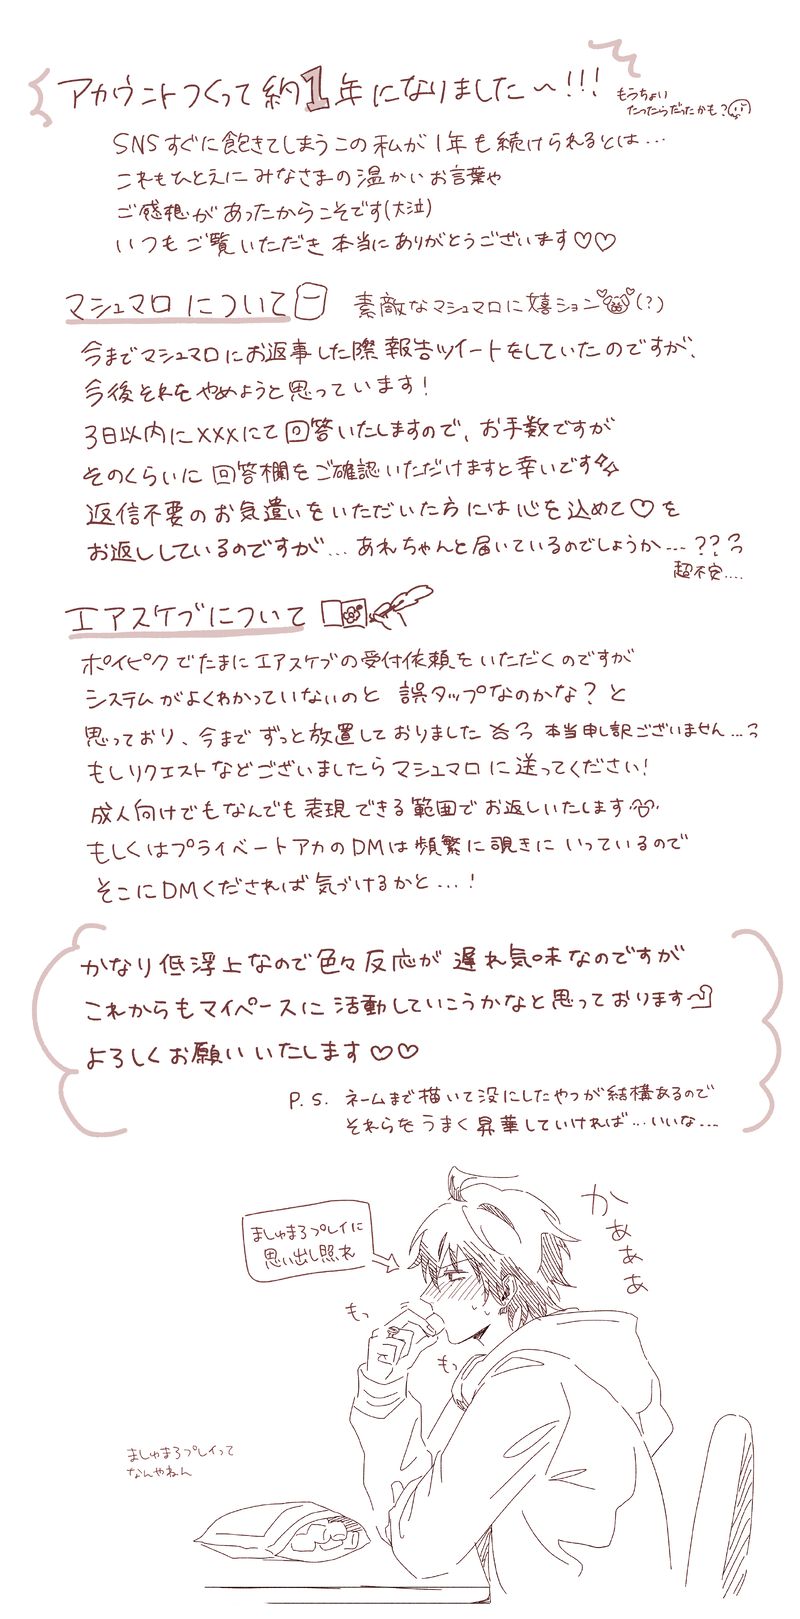 アカウントつくって約1年になりました〜!!!
もうちょい
たったらだったかも?
SNSすぐに飽きてしまうこの私が1年も続けられるとは…
これもひとえにみなさまの温かいお言葉や
ご感想があったからこそです(大泣)
いつもご覧いただき本当にありがとうございます♡♡
マシュマロについて
素敵なマシュマロに嬉ション(?)
今までマシュマロにお返事した際報告ツイートをしていたのですが、
今後それをやめようと思っています!
3日以内にXXXにて回答いたしますので、お手数ですが
そのくらいに回答欄をご確認いただけますと幸いです
返信不要のお気遣いをいただいた方には心を込めて♡を
お返ししているのですが…あれちゃんと届いているのでしょうか…???
超不安….
エアスケブについて
ポイピクでたまにエアスケブの受付依頼をいただくのですが
システムがよくわかっていないのと 誤タップなのかな?と
思っており、今までずっと放置しておりました 本当申し訳ございません…
もしリクエストなどございましたらマシュマロに送ってください!
成人向けでもなんでも表現できる範囲でお返しいたします
もしくはプライベートアカのDMは頻繁に覗きにいっているので
そこにDMくだされば気づけるかと…!
かなり低浮上なので色々反応が遅れ気味なのですが
これからもマイペースに活動していこうかなと思っております
よろしくお願いいたします♡♡
P.S. ネームまで描いて没にしたやつが結構あるので
それらをうまく昇華していければ…いいな…
ましゅまろプレイに
思い出し照れ
かぁぁぁ
もっ
もっ
ましゅまろプレイって
なんやねん